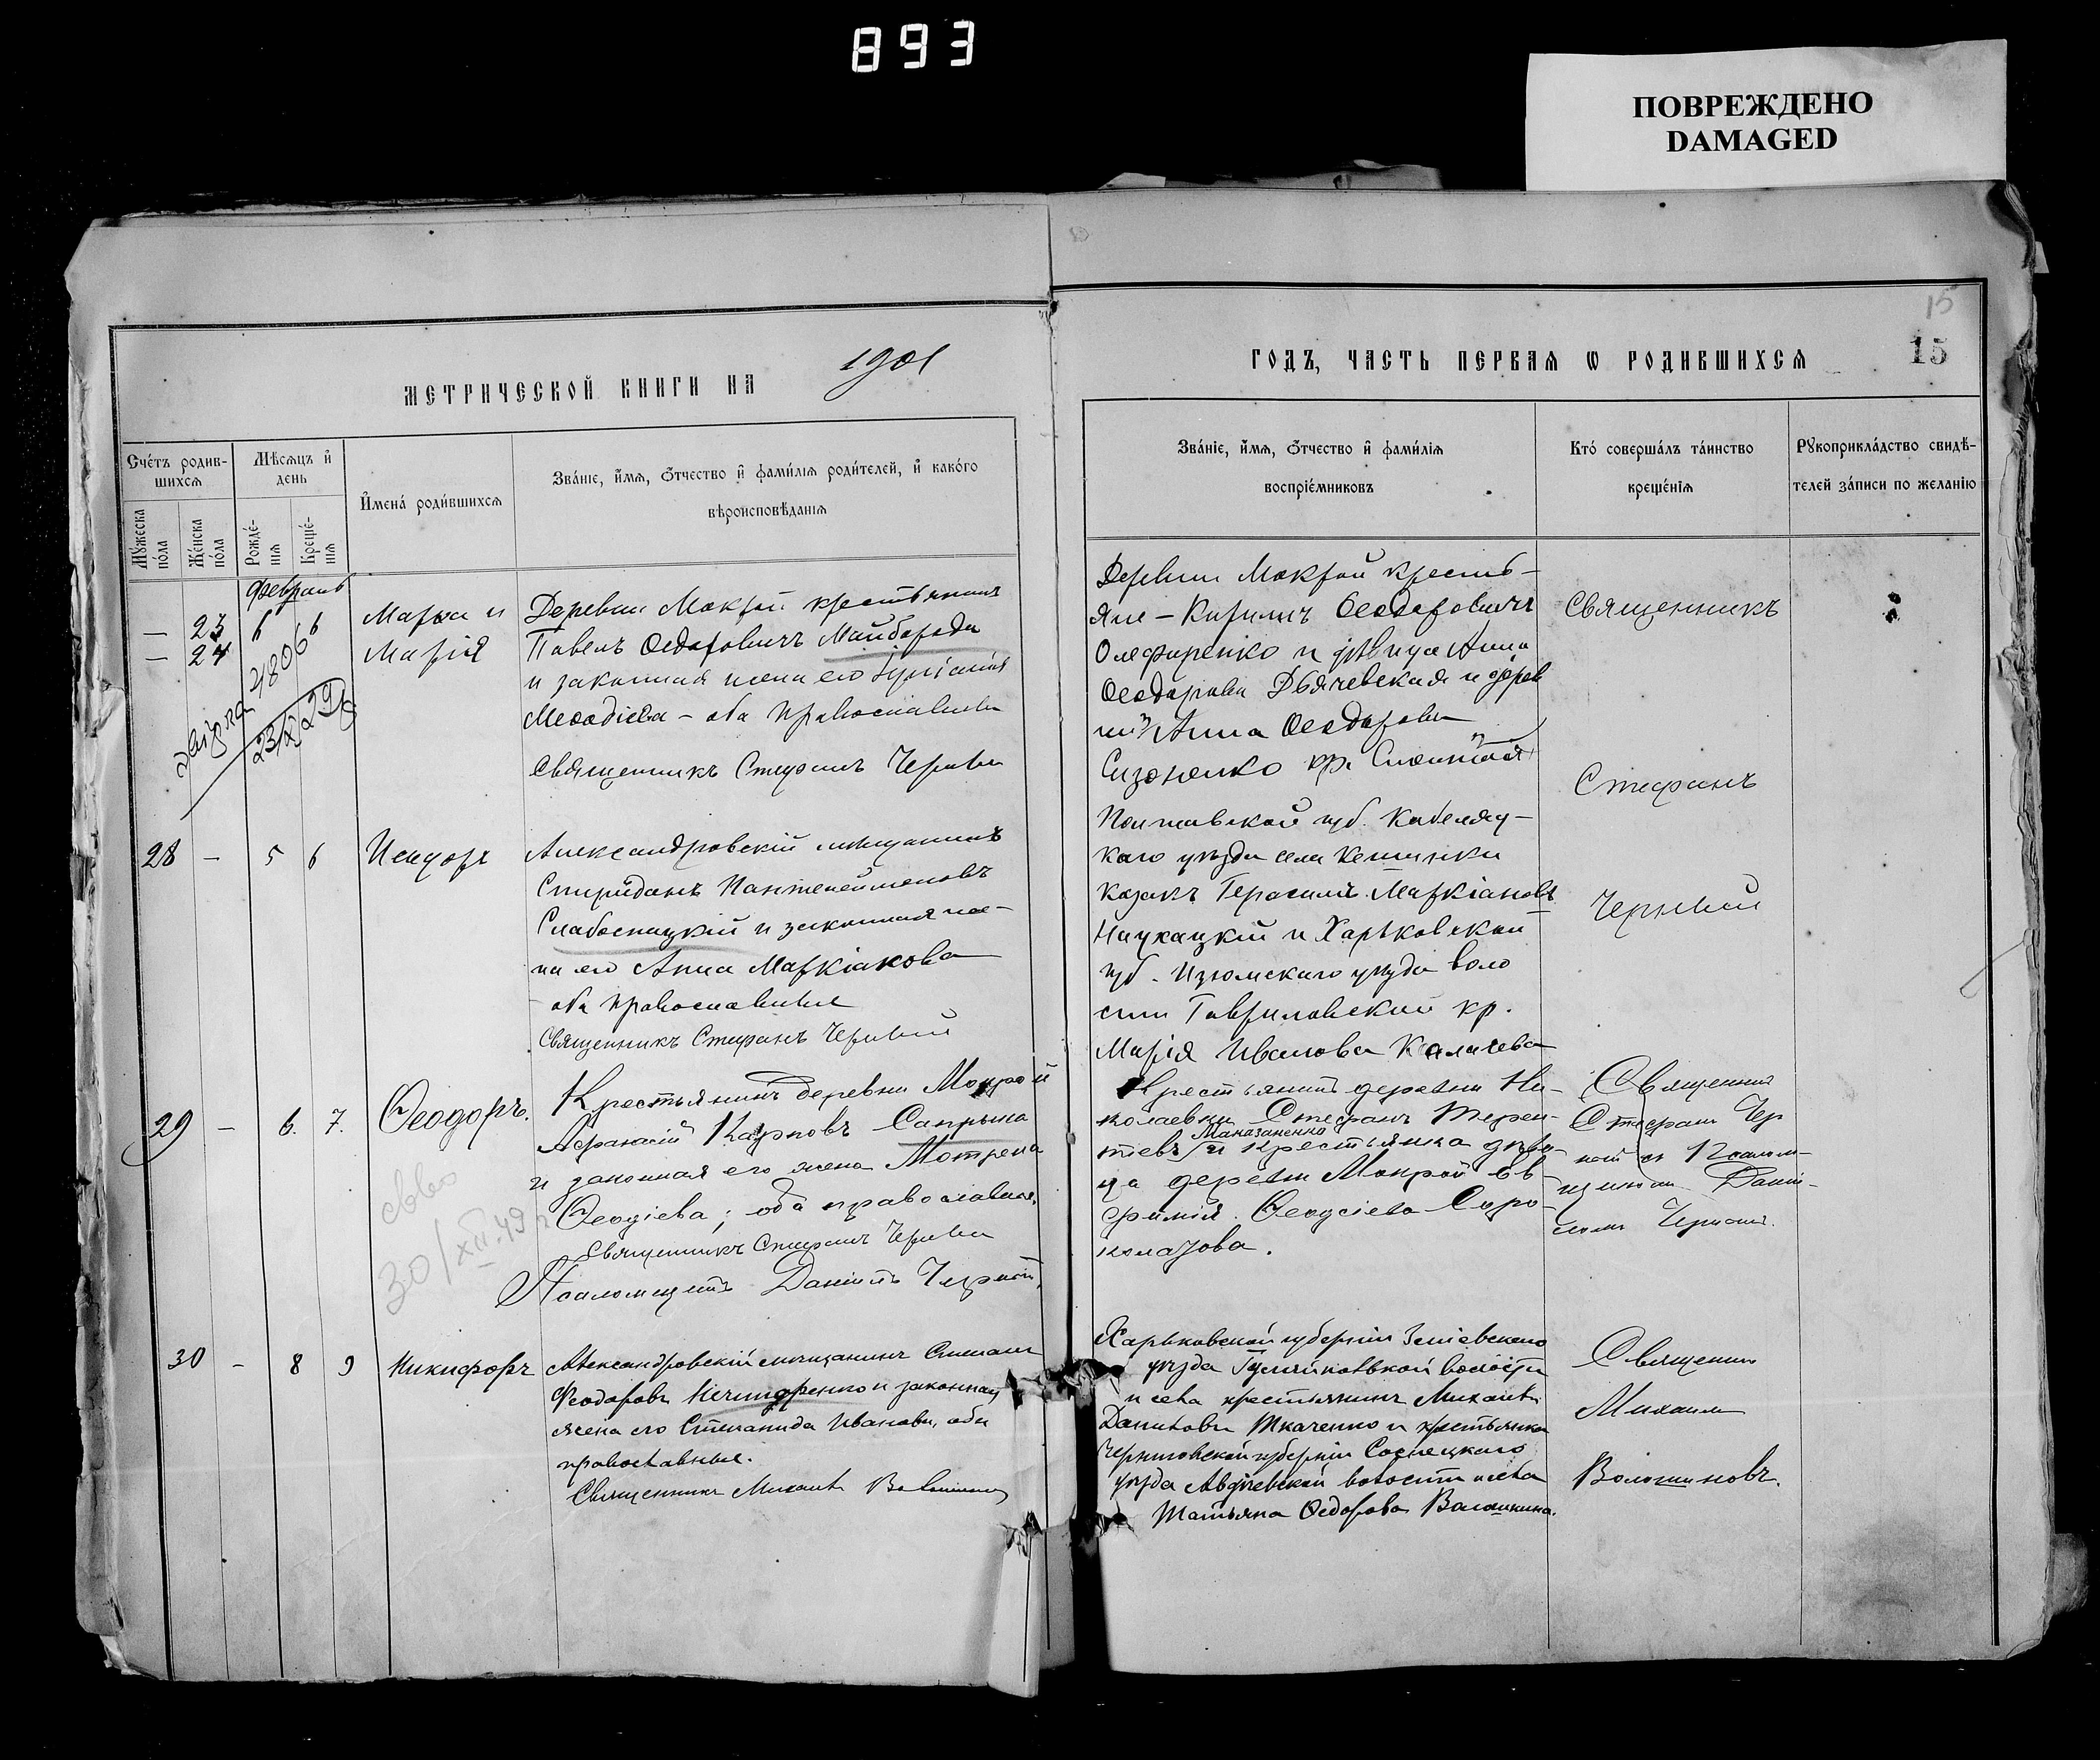 893
ПОВРЕЖДЕНО
DAMAGED
15
15
МЕТРИЧЕСКОЙ КНИГИ НА 1901
ГОДЪ, ЧАСТЬ ПЕРВАЯ Ѡ РОДИВШИХСЯ
Счетъ родив-
шихся
Мѣсяцъ и
день
Имена родившихся
Званіе, имя, отчество и фамилія родителей, и какого
вѣроисповѣданія
Мужеска
пола
Женска
пола
Рожде-
нія
Креще-
нія
Званіе, имя, отчество и фамилія
воспріемниковъ
Кто совершалъ таинство
крещенія
Рукоприкладство свидѣ-
телей записи по желанію
Февраль
— 23 6 6 Марѳа и
— 24 Марія
4806
Деревни Мокрой крестьянинъ
Павелъ Ѳедоровичъ Майборода
и законная жена его
Меѳодіева – оба православные
Священникъ Стефанъ Черный
Деревни Мокрой кресть-
яне – Кириллъ Ѳеодоровичъ
Олефиренко и дѣвица Анна
Ѳеодорова Дьячевская и дерев
Анна Ѳеодорова
Сизоненко кр.
Священникъ
Стефанъ
Черный
28 — 5 6 Исидоръ
Александровскій мѣщанинъ
Спиридонъ Пантелеймоновъ
Слабоспицкій и законная же-
на его Анна Маркіанова
– оба православные
Священникъ Стефанъ Чернный
Полтавской губ. Кобеляц-
каго уѣзда села Кешинки
козакъ Герасимъ Маркіановъ
и Харьковской
губ. Изюмскаго уѣзда воло
сти Гавриловской кр.
Марія Иванова Калачева
29 — 6. 7. Ѳеодоръ.
30/XII.49
Крестьянинъ деревни Мокрой
Афанасій Карповъ Сапрыка
и законная его жена Мотрена
Ѳеодіева; оба православные.
Священникъ Стефанъ Чернный
Псаломщикъ Даніилъ Черный.
Крестьянинъ деревни Ни-
колаевки Стефанъ Терен-
тіевъ Маказаненко и крестьянка дѣви-
ца деревни Мокрой Ев-
фимія Ѳеодосіева Соро-
колатова.
Священникъ
Стефанъ Чер
ный съ Псалом-
щикомъ Дани-
ломъ Чернымъ.
30 — 8 9 Никифоръ
Александровскій мѣщанинъ Степанъ
Ѳеодоровъ Нечипоренко и законная
жена его Степанида Иванова, оба
православные.
Священникъ Михаилъ Волошиновъ
Харьковской губерніи Зміевскаго
уѣзда волости
и села крестьянинъ Михаилъ
Даниловъ Ткаченко и крестьянка
Черниговской губерніи Сосницкаго
уѣзда Авдѣевской волости и села
Татьяна Ѳедорова Волошкина.
Священникъ
Михаилъ
Волошиновъ.